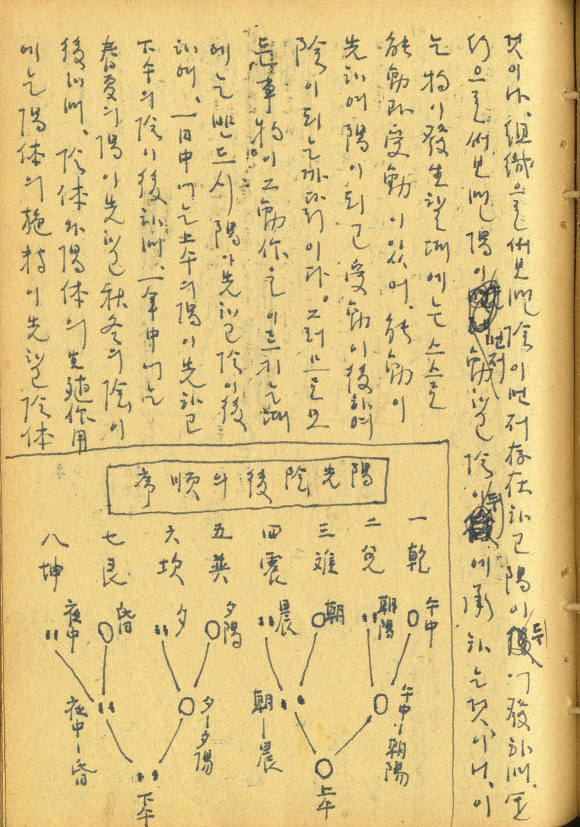 것이다, 組織으로써보면 陰이먼저存在하고 陽이뒤에發하며, 运
行으로써보면 陽이먼저 動하고 陰이뒤에 承하는것이니, 이
는物이發生할때에는 스스로
能動과受動이있어, 能動이
先하여陽이되고 受動이後하여
陰이되는까닭이다. 그러므로모
든事物이그動作을이르키는때
에는반드시 陽이先하고陰이後
하며, 一日中에는上午의陽이先하고
下午의陰이後하며, 一年中에는
春夏의陽이先하고秋冬의陰이
後하며, 陰体와陽体의生殖作用
에는陽体의施持이先하고陰体
陽先陰後의順序
一乾
二兌
三離
四震
五巽
六坎
七艮
八坤
午中
朝陽
朝
晨
夕陽
夕
昏
夜中
午中-朝陽
朝-晨
夕-夕陽
夜中-昏
上午
下午